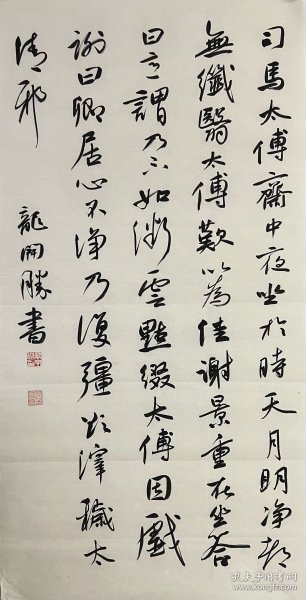 司馬太傅齋中夜坐於時天月明淨都
無纖翳太傅歎以為佳謝景重在坐答
曰意謂乃不如微雲點綴太傅因戲
謝曰卿居心不淨乃復彊欲滓穢太
清邪
龍開勝書
孔夫子旧书网